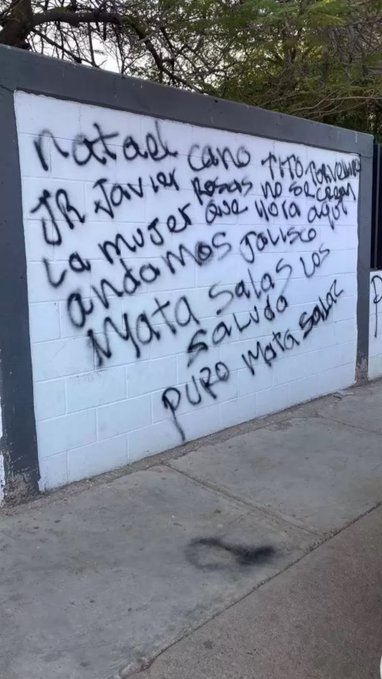 Rafael cano TITO TORVELLINO
JR Javier Rosas no se cegan
La mujer que llora aqui
andamos Jalisco
Mata salas los
saludo
puro Mata salaz